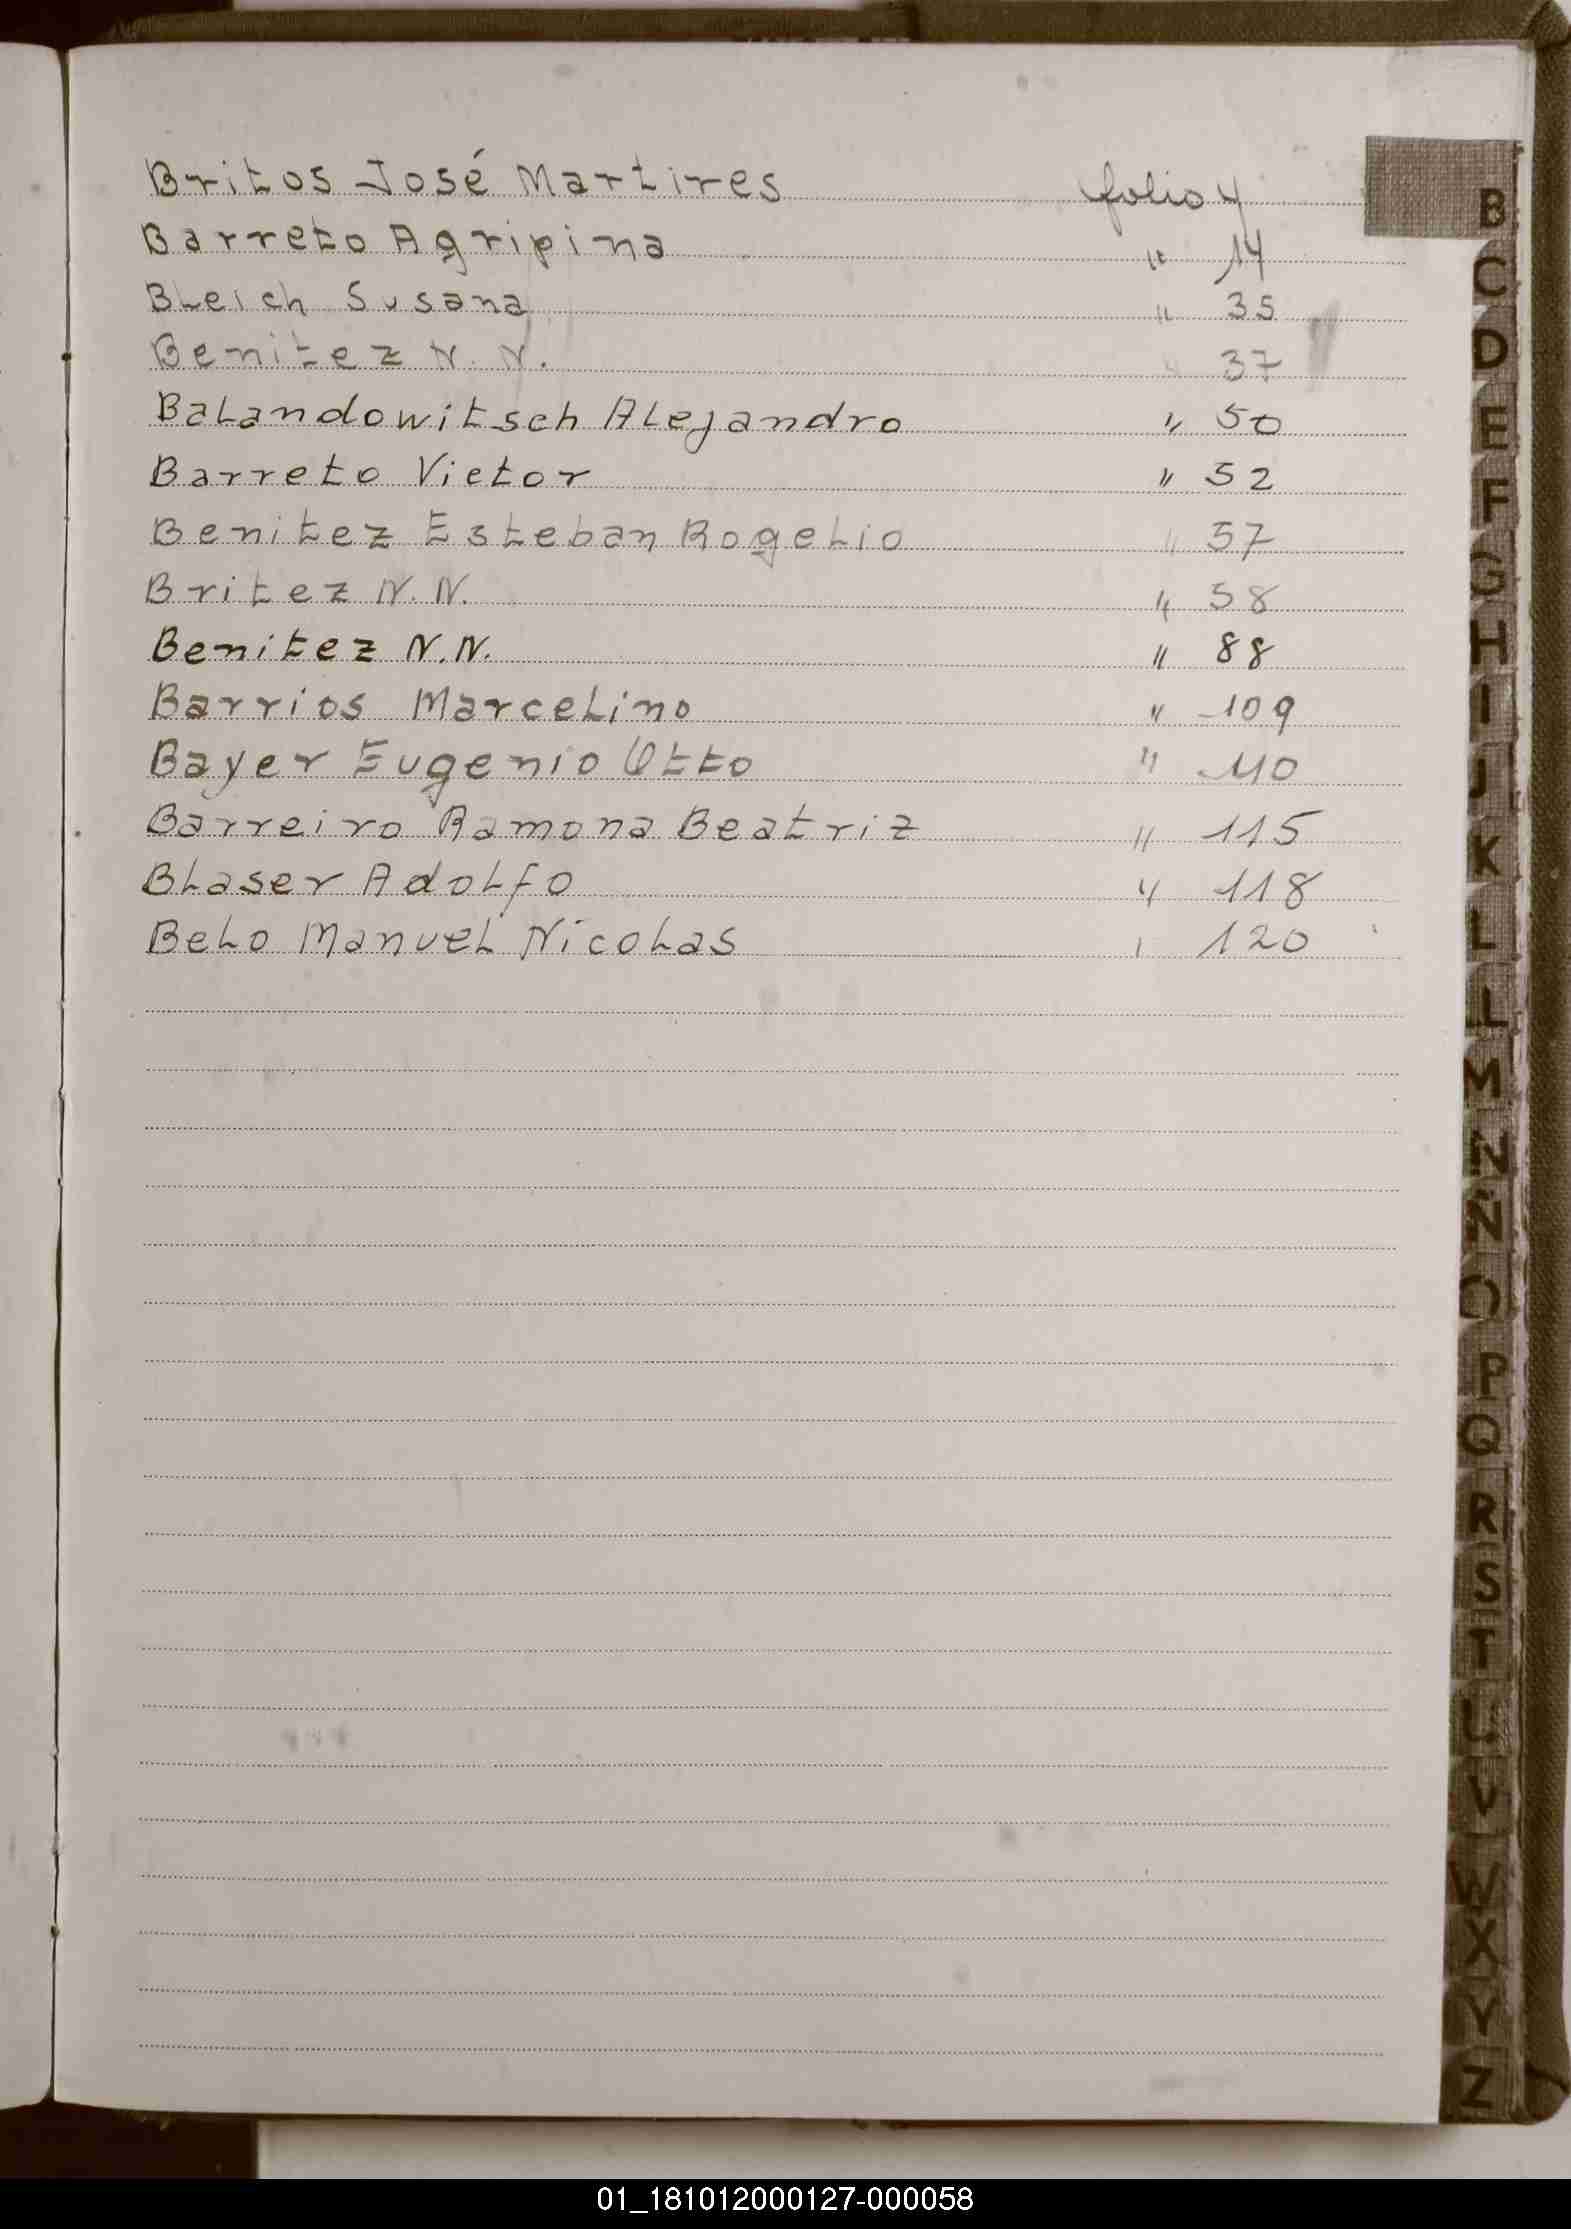 Britos José Martires folio 4
Barreto Agripina " 14
Bleich Susana " 35
Benitez N. N. " 37
Balandowitsch Alejandro " 50
Barreto Victor " 52
Benitez Esteban Rogelio " 57
Britez N. N. " 58
Benitez N. N. " 88
Barrios Marcelino " 109
Bayer Eugenio Otto " 110
Barreiro Ramona Beatriz " 115
Blaser Adolfo " 118
Belo Manuel Nicolas " 120
B
C
D
E
F
G
H
I
J
K
L
LL
M
N
Ñ
O
P
Q
R
S
T
U
V
W
X
Y
Z
01_181012000127-000058